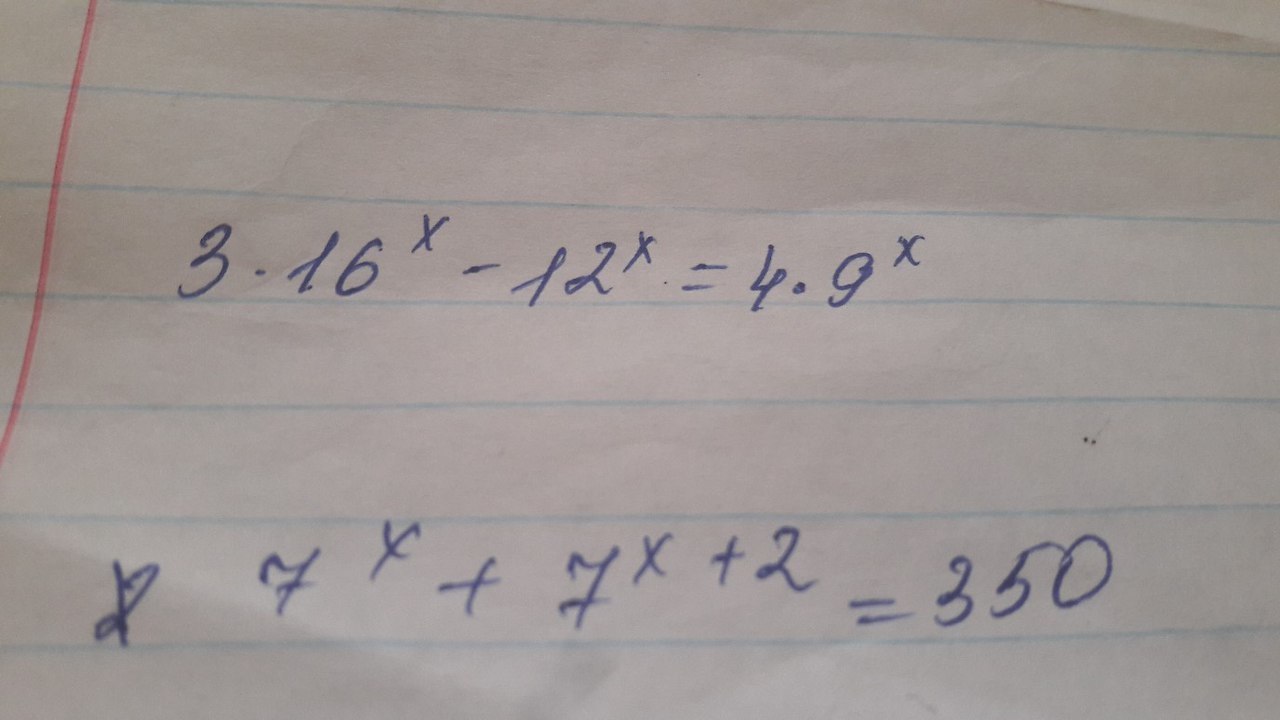 3 · 16^x - 12^x = 4 · 9^x
7^x + 7^x+2 = 350